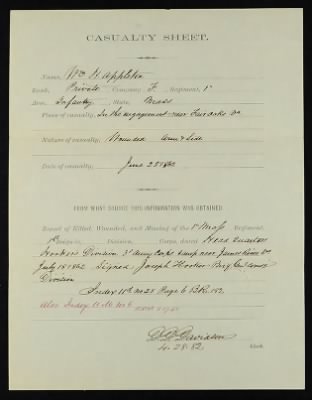 CASUALTY SHEET.
Name, Wm H Appleton
Rank, Private Company F Regiment, 1st
Arm, Infantry State, Mass
Place of casualty, In the engagement near Fair Oaks Va
Nature of casualty, Wounded Arm & Side
Date of casualty, June 25 1862
FROM WHAT SOURCE THIS INFORMATION WAS OBTAINED.
Report of Killed, Wounded, and Missing of the 1st Mass Regiment,
1st Brigade, Division, Corps, dated Head Quarters
Hookers Division 3d Army Corps Camp near James River Va
July 18 1862 Signed Joseph Hooker Brig Genl Comdg
Division
Index Page 6
Also Index
D D Davidson
4-28-82, Clerk.